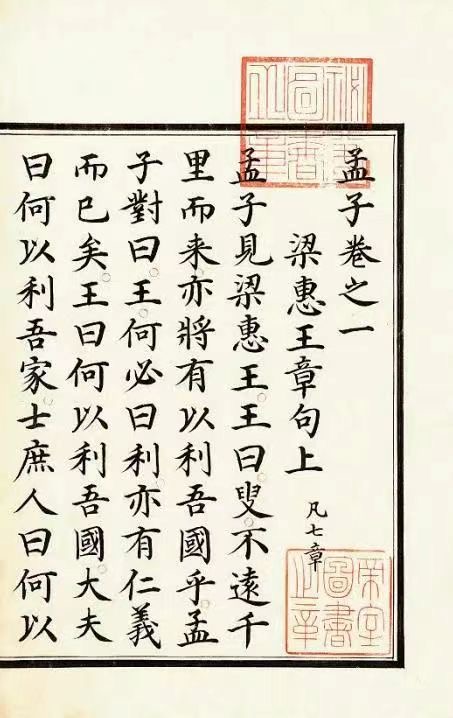 孟子卷之一
梁惠王章句上 凡七章
孟子見梁惠王王曰叟不遠千
里而来亦將有以利吾國乎孟
子對曰王何必曰利亦有仁義
而已矣王曰何以利吾國大夫
曰何以利吾家士庶人曰何以
帝室
圖書
之章